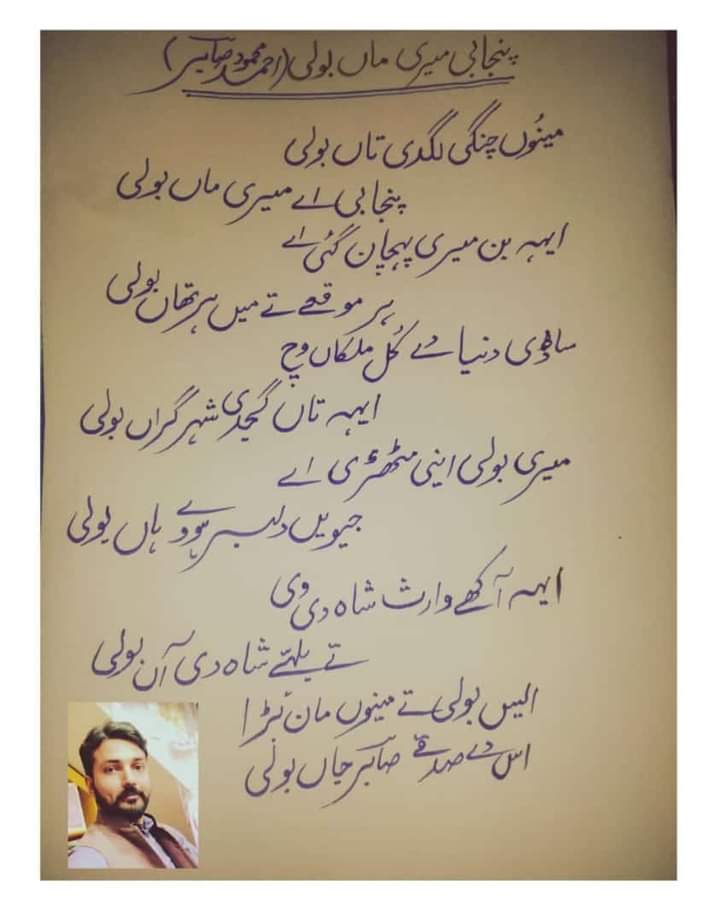 پنجابی میری ماں بولی (احمد محمود صابر)
مینُوں چنگی لگدی تاں بولی
پنجابی اے میری ماں بولی
ایہہ بن میری پہچان گئی اے
ہر موقعے تے میں ہر تھاں بولی
ساڈی دنیا دے کُل ملکاں وچ
ایہہ تاں گجدی شہر گراں بولی
میری بولی اینی مٹھڑی اے
جیویں دلبر ہووے ہاں بولی
ایہہ آکھے وارث شاہ دی وی
تے بلہے شاہ دی آن بولی
ایس بولی تے مینوں مان بڑا
اس دے صدقے صابر جاں بولی